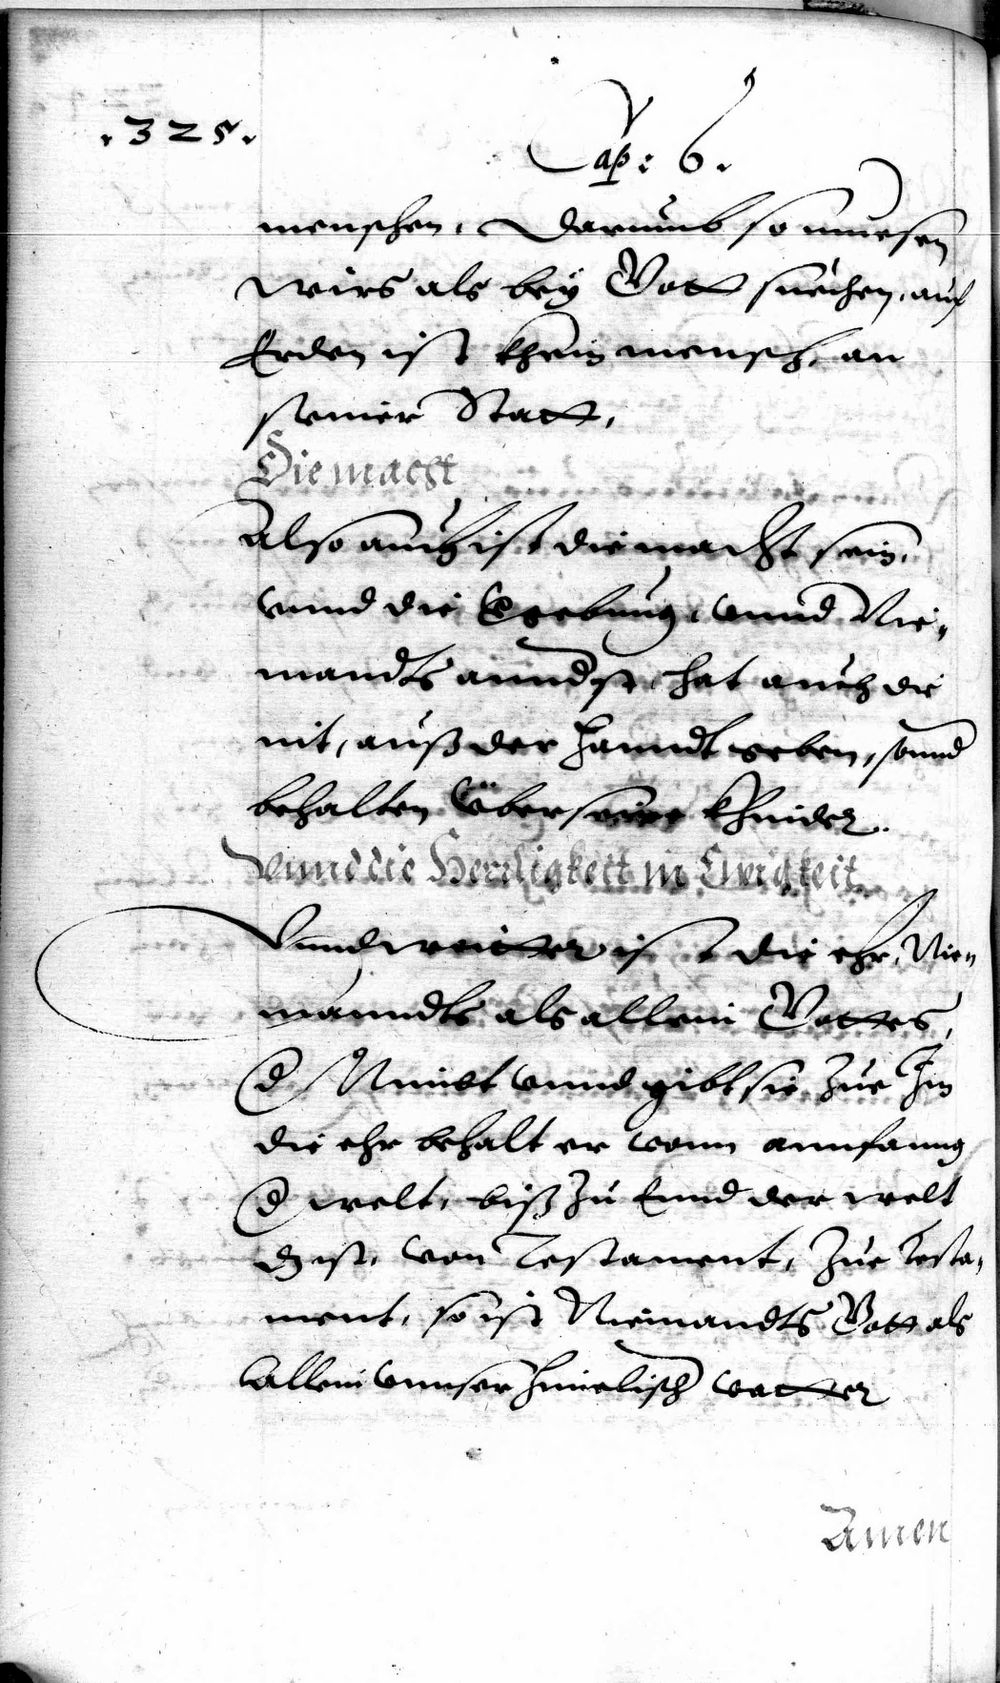 .325.
Cap: 6.
menschen, Darumb so muesen
wirs als bey Gott suechen, auf
Erden ist khein mensch, an
seiner Statt,
Die macht
Also auch ist die macht sein,
vnnd die Vgebung, vnnd Nie-
mandts annd\[er\]st, hat auch die
nit, auß der Hanndt geben, sonnd
behalten Über seine Khinder.
Vnnd die Herrligkeit in Ewigkeit
Vnnd weitter ist die ehr, Nie-
manndts als allein Gottes,
d Nimbt vnnd gibt sie Zue Im
die ehr behalt er vonn annfanng
d welt, biß Zu Ennd der welt
dz ist, von Testament, Zue Testa-
ment, so ist Niemandts Gott als
Allein vnnser himelisch vatter
Amen